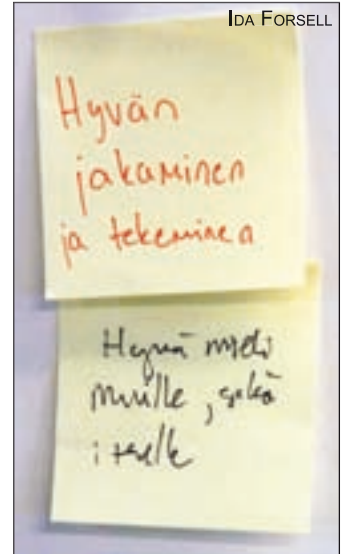 IDA FORSELL
Hyvän
jakaminen
ja tekeminen
Hyvä mieli
muille, sekä
itselle